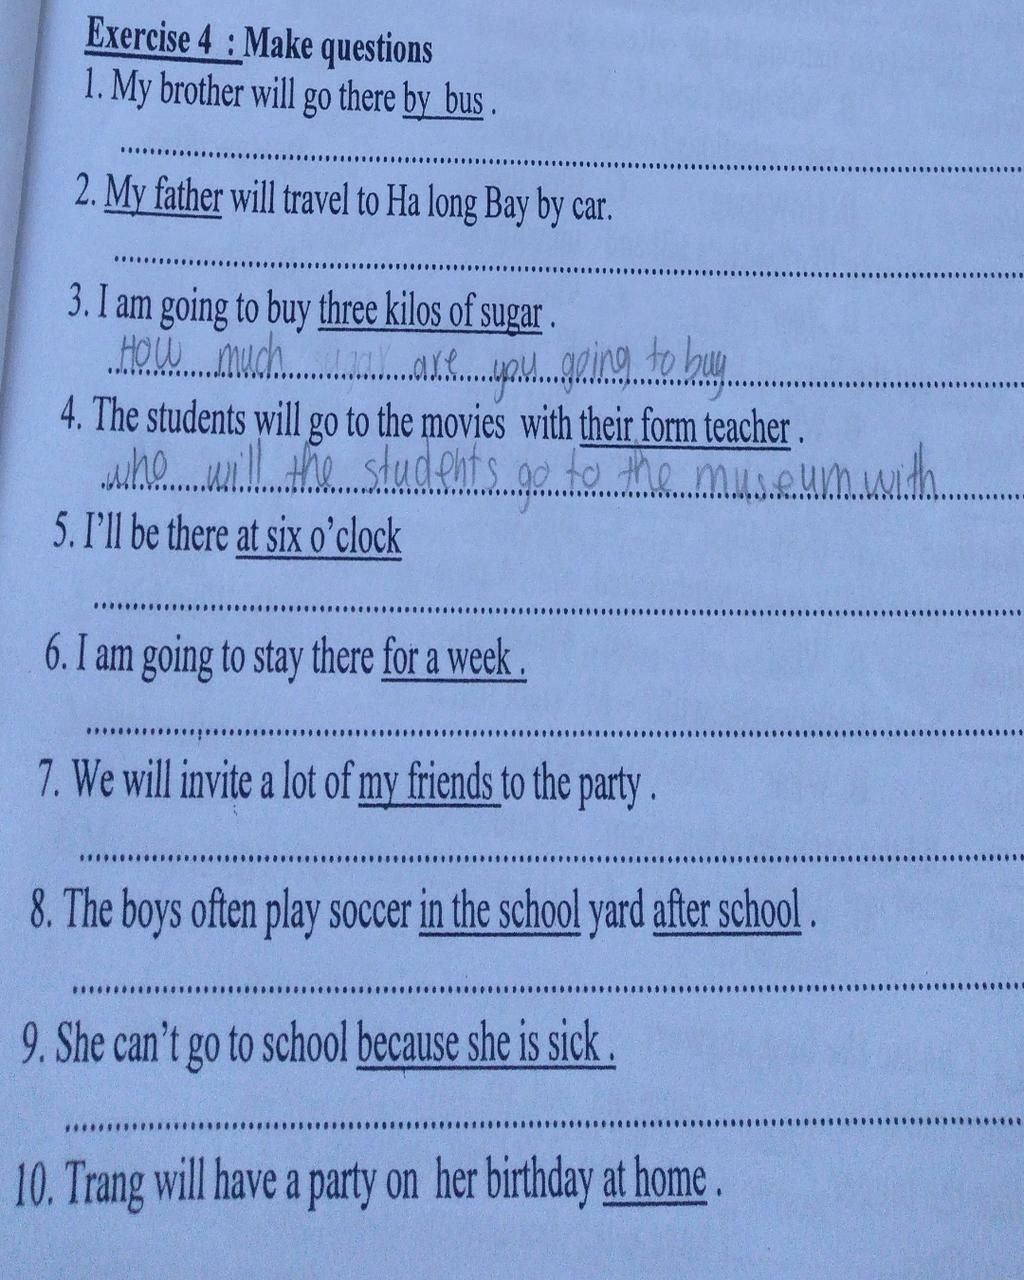 Exercise 4 : Make questions
1. My brother will go there by bus .
2. My father will travel to Ha long Bay by car.
3. I am going to buy three kilos of sugar .
How much sugar are you going to buy
4. The students will go to the movies with their form teacher .
who will the students go to the museum with
5. I'll be there at six o'clock
6. I am going to stay there for a week .
7. We will invite a lot of my friends to the party .
8. The boys often play soccer in the school yard after school .
9. She can't go to school because she is sick .
10. Trang will have a party on her birthday at home .